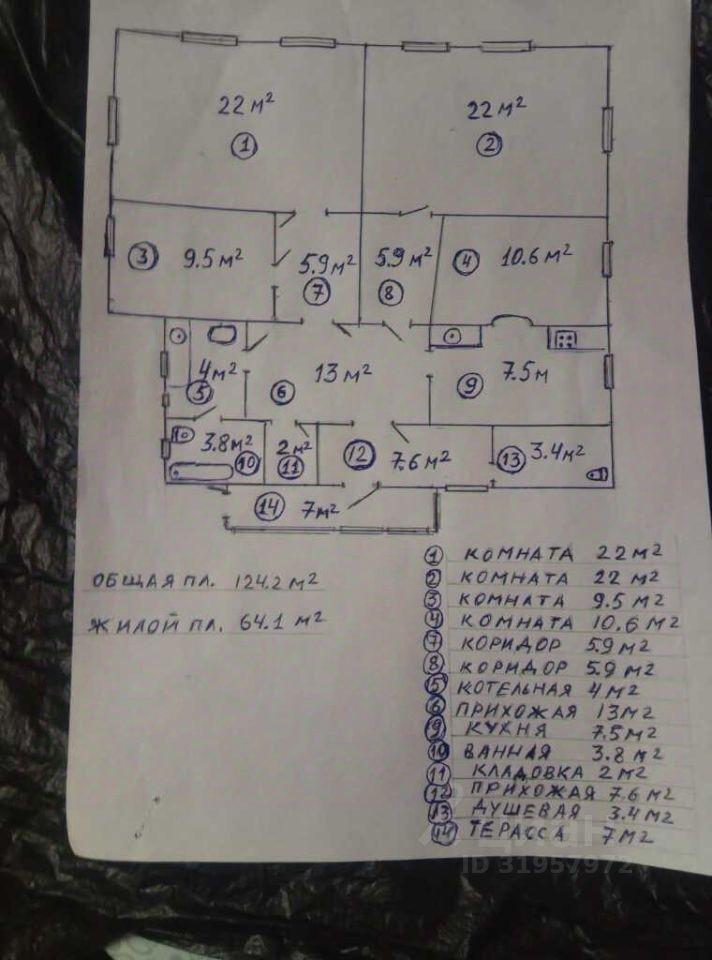 22 м²
22 м²
1
2
3
9.5 м²
5.9 м²
5.9 м²
4
10.6 м²
7
8
4 м²
13 м²
7.5 м
5
6
9
3.8 м²
10
2 м²
11
12
7.6 м²
13
3.4 м²
14
7 м²
ОБЩАЯ ПЛ. 124.2 м²
ЖИЛОЙ ПЛ. 64.1 м²
1 КОМНАТА 22 м²
2 КОМНАТА 22 м²
3 КОМНАТА 9.5 м²
4 КОМНАТА 10.6 м²
7 КОРИДОР 5.9 м²
8 КОРИДОР 5.9 м²
5 КОТЕЛЬНАЯ 4 м2
6 ПРИХОЖАЯ 13 м2
9 КУХНЯ 7.5 м2
10 ВАННАЯ 3.8 м2
11 КЛАДОВКА 2 м2
12 ПРИХОЖАЯ 7.6 м2
13 ДУШЕВАЯ 3.4 м2
14 ТЕРАССА 7 м2
циан
ID 31957972